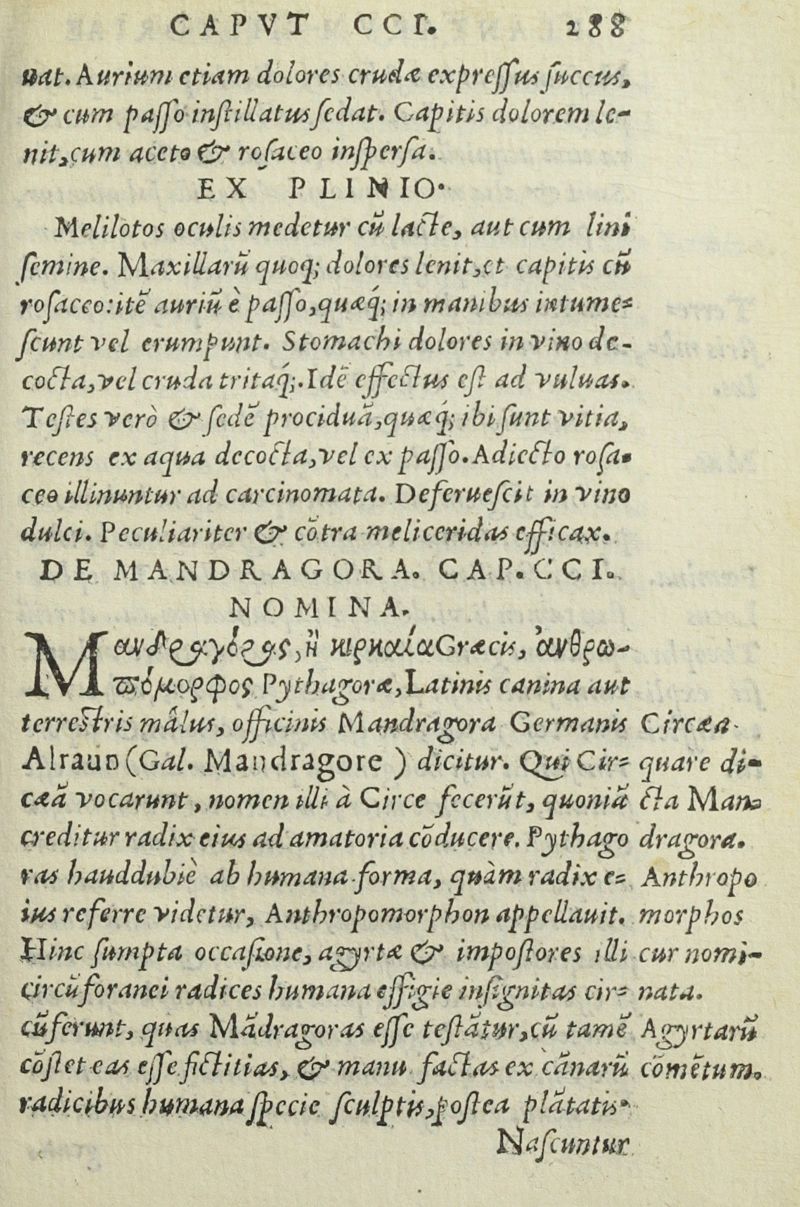 CAPVT CCI. 288
uat. Aurium etiam dolores crudæ expressus succus,
& cum passo instillatus sedat. Capitis dolorem le-
nit, cum aceto & rosaceo inspersa.
EX PLINIO.
Melilotos oculis medetur cũ lacte, aut cum lini
semine. Maxillarũ quoq; dolores lenit, et capitis cũ
rosaceo: itẽ auriũ è passo, quæq́; in manibus intume-
scunt vel erumpunt. Stomachi dolores in vino de-
cocta, vel cruda tritaq́;. Idẽ effectus est ad vuluas.
Testes verò & sedẽ prociduã, quæq́; ibi sunt vitia,
recens ex aqua decocta, vel ex passo. Adiecto rosa-
ceo illinuntur ad carcinomata. Deferuescit in vino
dulci. Peculiariter & cõtra meliceridas efficax.
DE MANDRAGORA. CAP. CCI.
NOMINA.
Μανδραγόρας, ἢ κιρκαία Græcis, ἀνθρω-
πόμορφος Pythagoræ, Latinis canina aut
terrestris mâlus, officinis Mandragora Germanis
Alraun (Gal. Mandragore) dicitur. Qui Cir-
cæã vocarunt, nomen illi à Circe fecerũt, quoniã
creditur radix eius ad amatoria cõducere. Pythago
ras hauddubiè ab humana forma, quàm radix e-
ius referre videtur, Anthropomorphon appellauit.
Hinc sumpta occasione, agyrtæ & impostores illi
circũforanei radices humana effigie insignitas cir-
cũferunt, quas Mãdragoras esse testãtur, cũ tamẽ
cõstet eas esse fictitias, & manu factas ex cãnarũ
radicibus humana specie sculptis, postea plãtatis.
Nascuntur
Circæa
quare di-
cta Man-
dragora.
Anthropo
morphos
cur nomi-
nata.
Agyrtarũ
cõmẽtum.